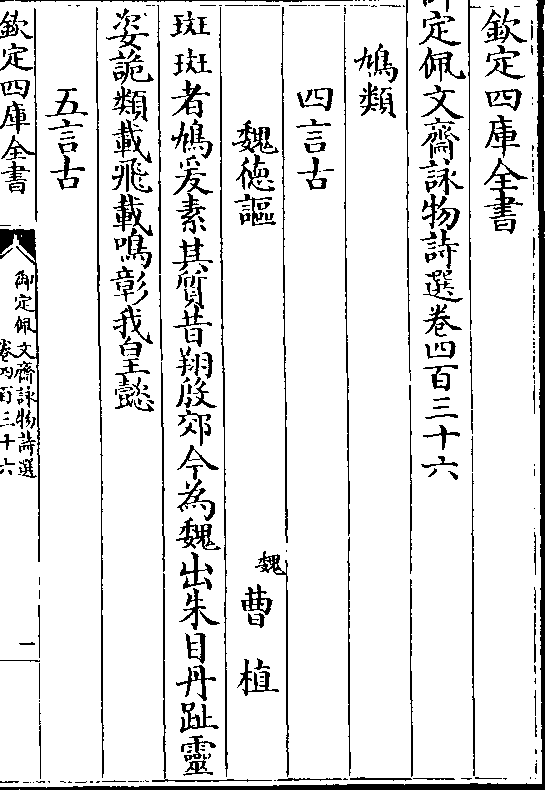 欽定四庫全書
御定佩文齋詠物詩選卷四百三十六
鳩類
四言古
魏徳謳
魏曹植
斑斑者鳩爰素其質昔翔殷郊今為魏出朱目丹趾靈
姿詭類載飛載鳴彰我皇懿
五言古
欽定四庫全書
御定佩文齋詠物詩選
卷四百三十六
一